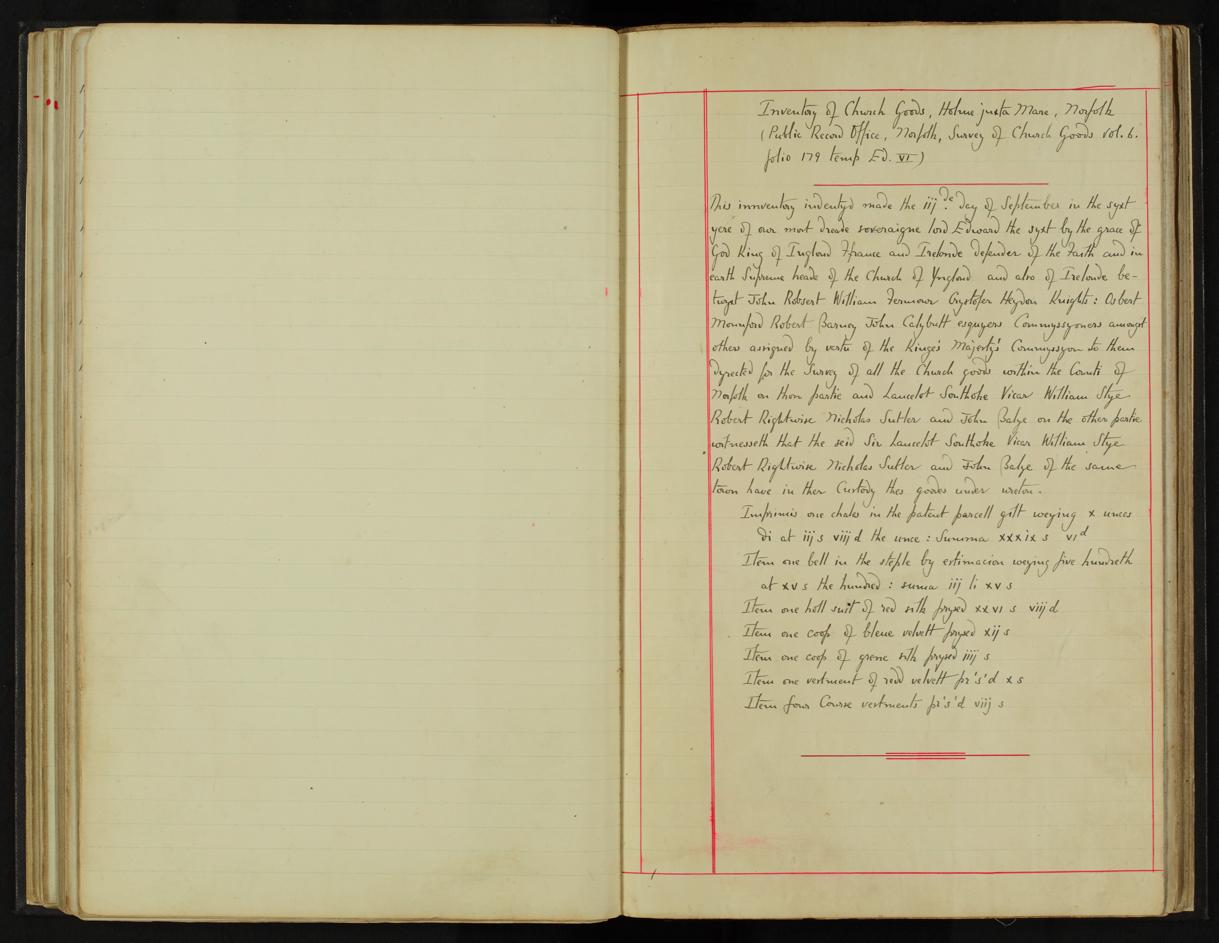 Inventory of Church Goods, Holme juxta Mare, Norfolk
(Public Record Office, Norfolk, Survey of Church Goods vol. 6.
folio 179 temp Ed. VI)
This innventory indentyd made the iij de. day of September in the syxt
yere of our most dreade soveraigne lord Edward the syxt by the grace of
God King of Inglond Ffrance and Irelonde defender of the Faith and in
earth Supreme heade of the Church of Ynglond and also of Irelonde be-
twyxt John Robsert William Fermour Crystofer Heydon Knights: Osbert
Mounford Robert Barney John Calybutt esquyers Commyssyoners amongst
others assigned by vertu of the Kinge's Majesty's Commyssyon to them
dyrected for the Survey of all the Church goods within the Counti of
Norfolk on thon partie and Lancelot Southoke Vicar William Stye
Robert Rightwise Nicholas Sutler and John Balye on the other partie
witnesseth that the seid Sir Lancelot Southoke Vicar William Stye
Robert Rightwise Nicholas Sutler and John Balye of the same
town have in ther Custody thes goodes under wreton.
Imprimis one chales in the patent parcell gilt weying x unces
di at iij s viij d the unce: Summa xxxix s vi d
Item one bell in the steple by estimacion weying five hundreth
at xv s the hundred: suma iij li xv s
Item one holl suit of red silk prysed xxvi s viij d
Item one coop of bleue velvett prysed xij s
Item one coop of grene silk prysed iiij s
Item one vestment of redd velvett pr's'd x s
Item four Course vestments pr's'd viij s